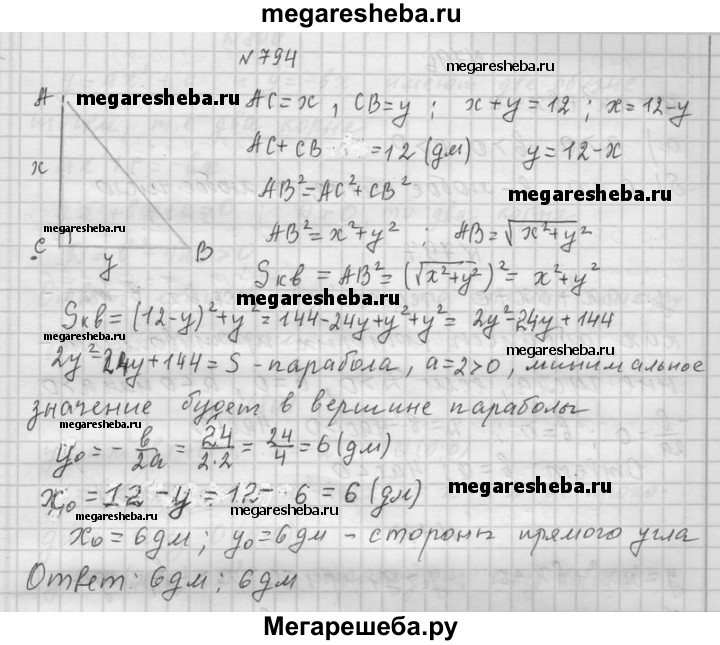 megaresheba.ru
№ 794
A megaresheba.ru AC = x , CB = y ; x + y = 12 ; x = 12 - y
megaresheba.ru
megaresheba.ru
x AC + CB = 12 (дм) y = 12 - x
AB² = AC² + CB² megaresheba.ru
megaresheba.ru
AB² = x² + y² ; AB = √x² + y²
C y B
Sкв = AB² = (√x² + y²)² = x² + y²
megaresheba.ru
Sкв = (12 - y)² + y² = 144 - 24y + y² + y² = 2y² - 24y + 144
megaresheba.ru
2y² - 24y + 144 = S - парабола, a = 2 > 0, минимальное
значение будет в вершине параболы
megaresheba.ru
y₀ = - b/2a = 24/2·2 = 24/4 = 6 (дм)
megaresheba.ru
x₀ = 12 - y = 12 - 6 = 6 (дм) megaresheba.ru
megaresheba.ru megaresheba.ru
x₀ = 6 дм ; y₀ = 6 дм - стороны прямого угла
Ответ: 6 дм ; 6 дм
Мегарешеба.ру